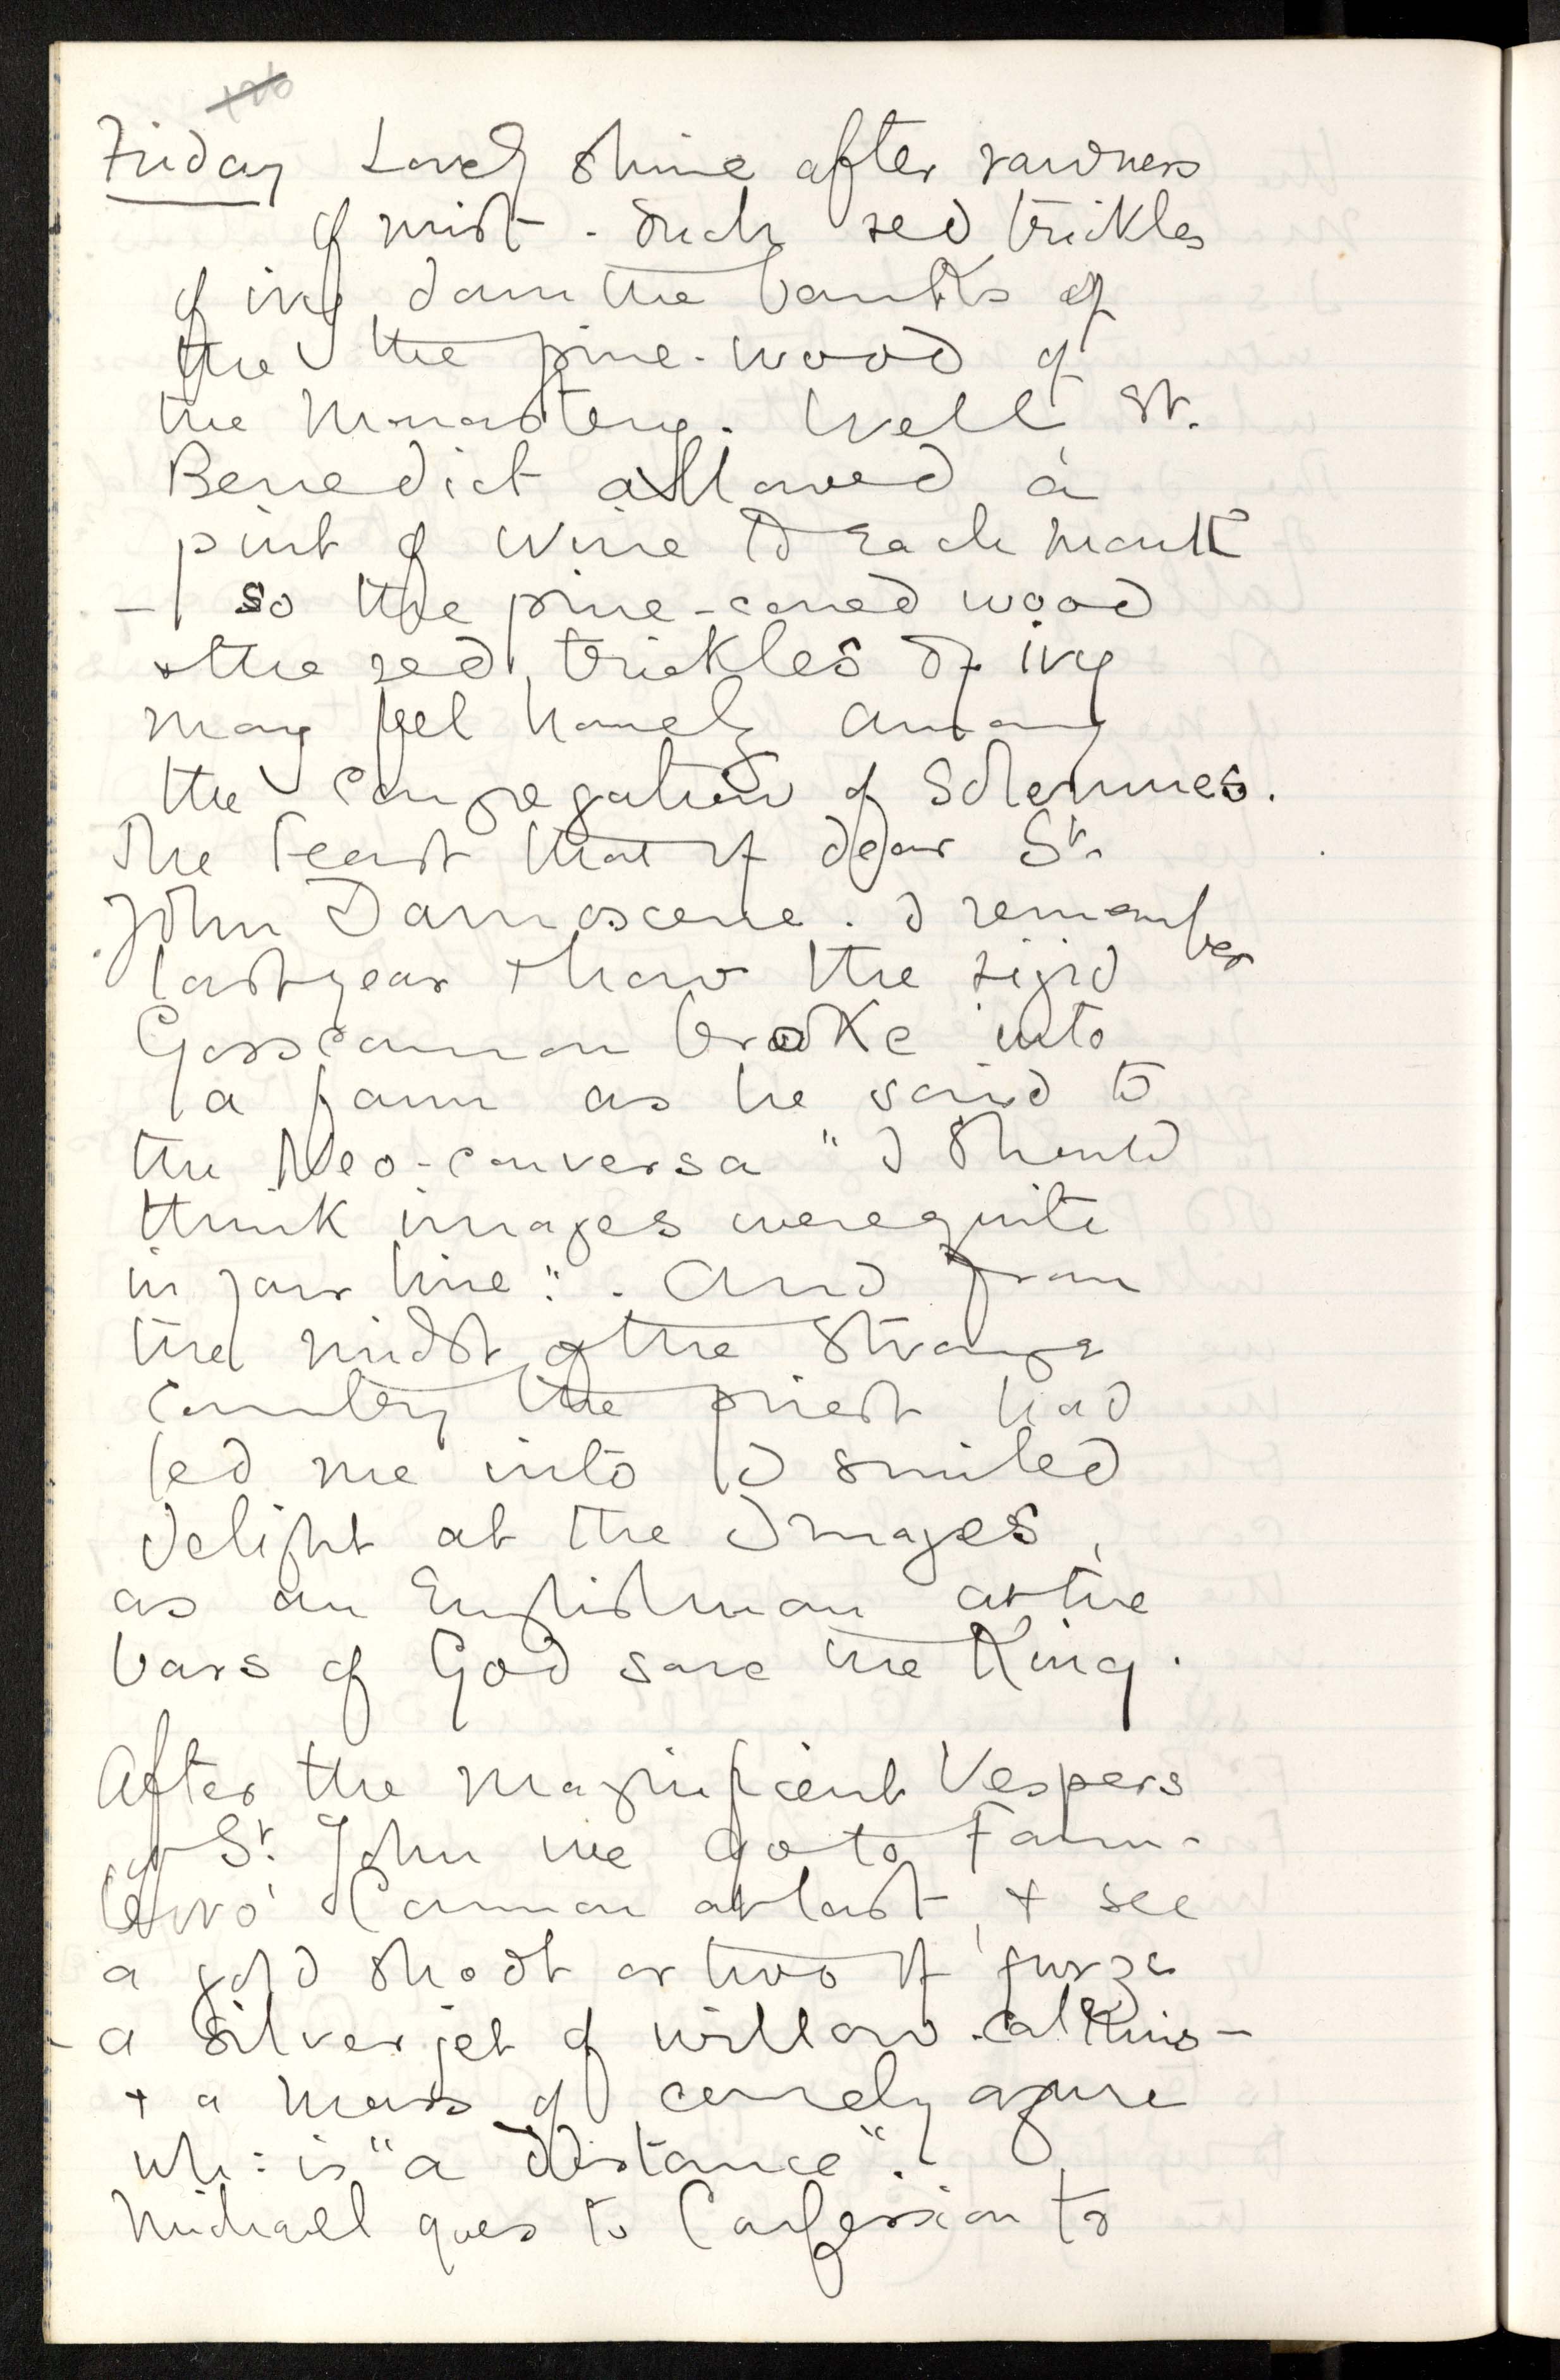 Friday Lovely shine after rawness
of mist. Such red trickles
of ivy down the banks of
the the pine-wood of
the Monastery. Well St.
Benedict allowed a
pint of wine to each mouth
— so the pine-coned wood
& the red trickles of ivy
may feel homely among
the Congregation of Solemnes.
The Feast that of dear St.
John Damascene. I remember
last year & how the rigid
Gosscannon broke into
a fawn as he said to
the Neo-conversa "I should
think images were quite
in your line". And from
the midst of the strange
country the priest had
led me into I smiled
delight at the Images,
as an Englishman at the
bars of God save the King.
After the magnificent Vespers
of St. John we go to Farn-
boro' Common at last, & see
a gold shoot or two of furze
- a silver jet of willow-catkins -
& a mass of comely azure
wh: is "a distance".
Michael goes to Confession to